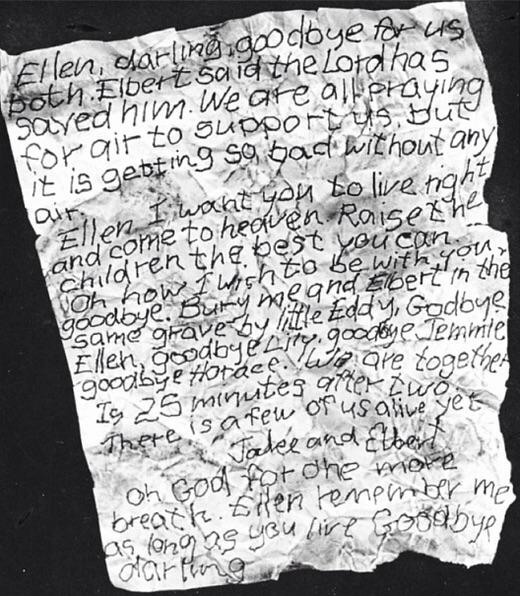 Ellen, darling, goodbye for us
both. Elbert said the Lord has
saved him. We are all praying
for air to support us. but
it is getting so bad without any
air.
Ellen I want you to live right
and come to heaven. Raise the
children the best you can.
Oh how I wish to be with you,
goodbye. Bury me and Elbert in the
same grave by little Eddy, Godbye
Ellen, goodbye Lily, goodbye Jemmie
goodbye Horace. are together
Is 25 minutes after two
There is a few of us alive yet
Jake and Elbert
Oh God for one more
breath. Ellen remember me
as long as you live Goodbye
darling